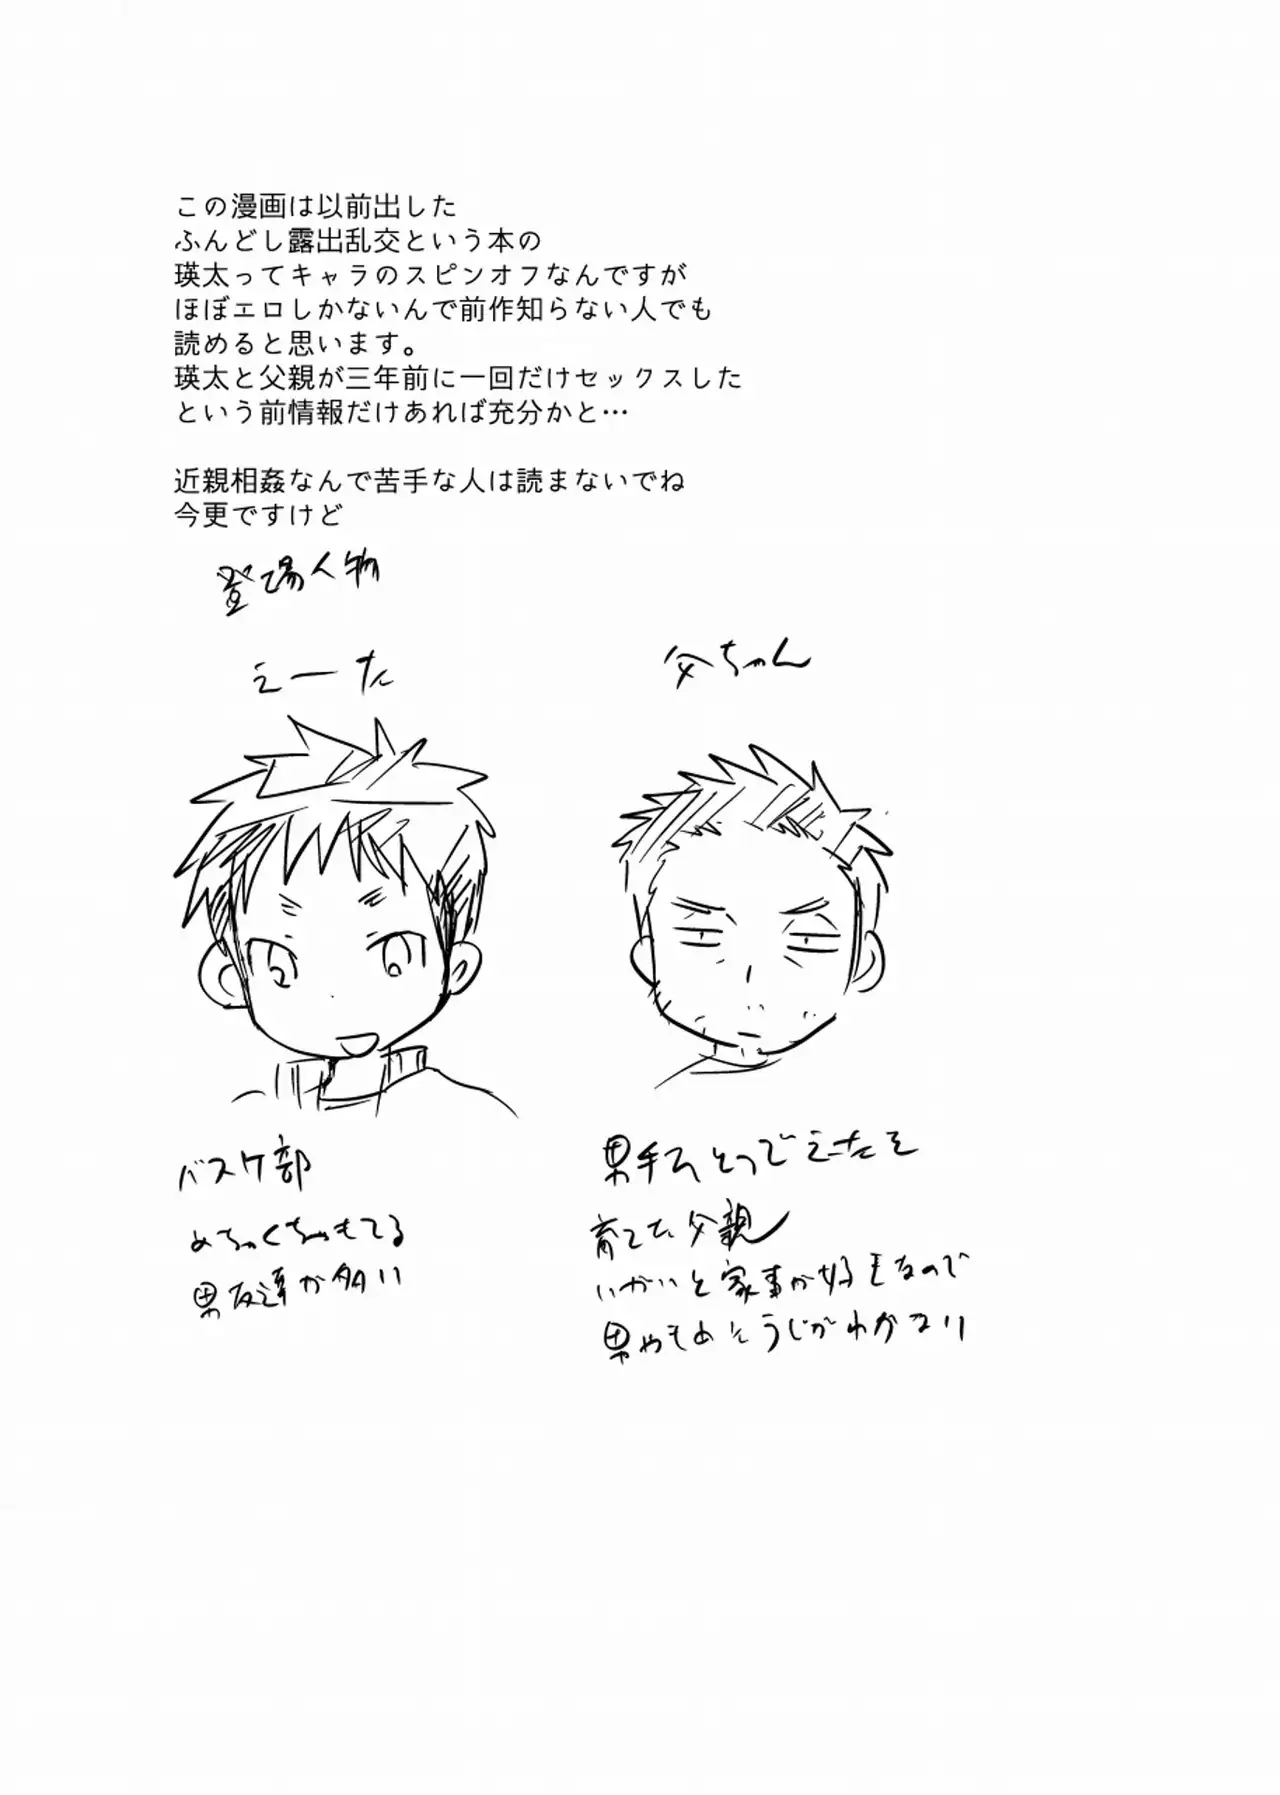 この漫画は以前出した
ふんどし露出乱交という本の
瑛太ってキャラのスピンオフなんですが
ほぼエロしかないんで前作知らない人でも
読めると思います。
瑛太と父親が三年前に一回だけセックスした
という前情報だけあれば充分かと…
近親相姦なんで苦手な人は読まないでね
今更ですけど
登場人物
えーた
父ちゃん
バスケ部
めちゃくちゃもてる
男友達が多い
男手ひとつでえーたを
育てた父親
いがいと家事が好きなので
男やもめ